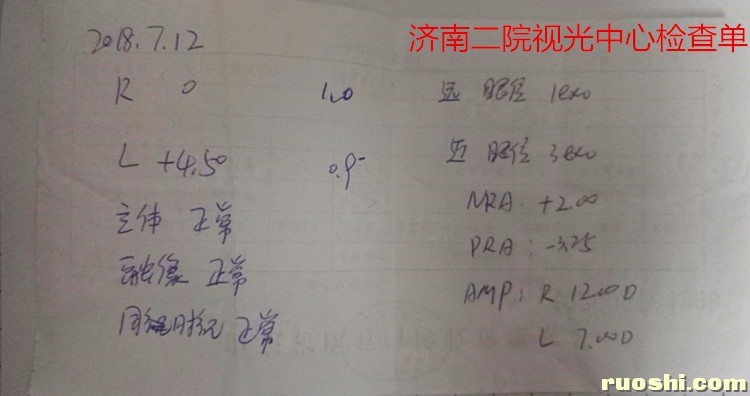 济南二院视光中心检查单
2018.7.12
R 0 1.0
L +4.50 0.9-
立体 正常
融像 正常
同视 正常
远 眼位 1exo
近 眼位 3exo
NRA: +2.00
PRA: -3.25
AMP: R 12.00D
L 7.00D
ruoshi.com